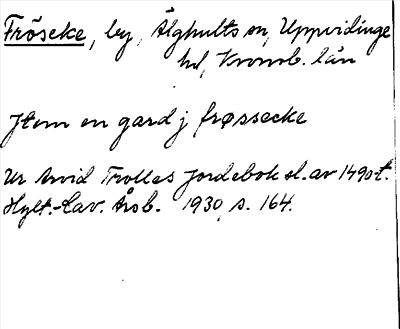 Fröseke, by, Älghults sn, Uppvidinge
hd, Kronob. län
Jtem en gard j frøssecke
Ur Arvid Trolles Jordebok sl. av 1490-t.
Hylt.-Cav. Årsb. 1930, s. 164.